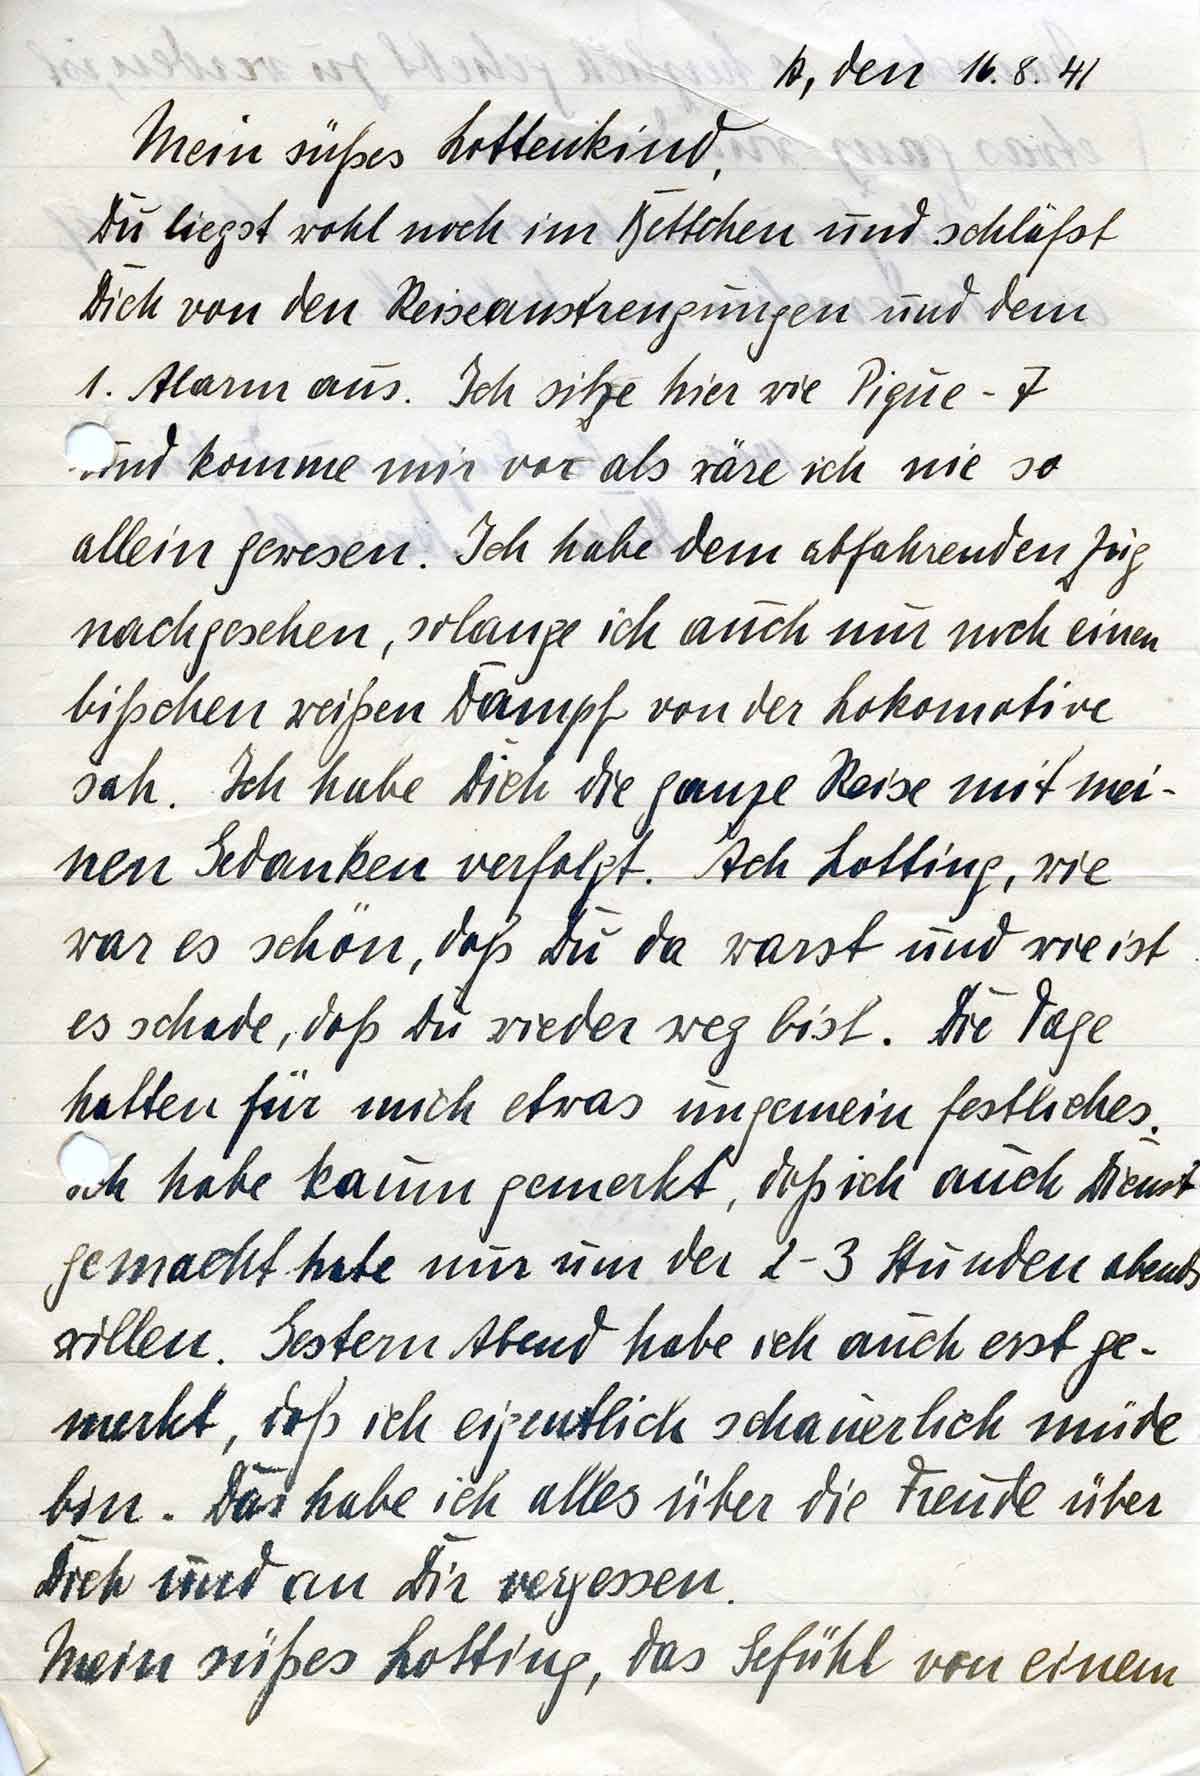 den 16. 8. 41
Mein süßes Lottenkind,
Du liegst wohl noch im Bettchen und schläfst
Dich von den Reiseanstrengungen und dem
1. Alarm aus. Ich sitze hier wie Pique-7
und komme mir vor als wäre ich nie so
allein gewesen. Ich habe dem abfahrenden Zug
nachgesehen, solange ich auch nur noch einen
bißchen weißen Dampf von der Lokomotive
sah. Ich habe Dich die ganze Reise mit mei-
nen Gedanken verfolgt. Ach Lotting, wie
war es schön, daß Du da warst und wie ist
es schade, daß Du wieder weg bist. Die Tage
hatten für mich etwas ungemein festliches.
Ich habe kaum gemerkt, daß ich auch Dienst
gemacht habe nur um der 2-3 Stunden abends
willen. Gestern Abend habe ich auch erst ge-
merkt, daß ich eigentlich schauerlich müde
bin. Das habe ich alles über die Freude über
Dich und an Dir vergessen.
Mein süßes Lotting, das Gefühl von einem